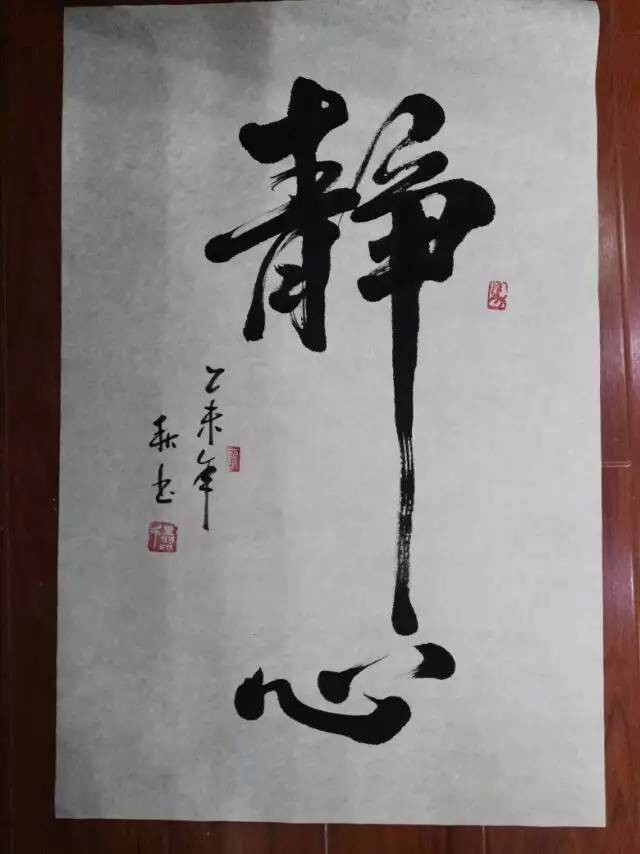 静心
乙未年
秋书